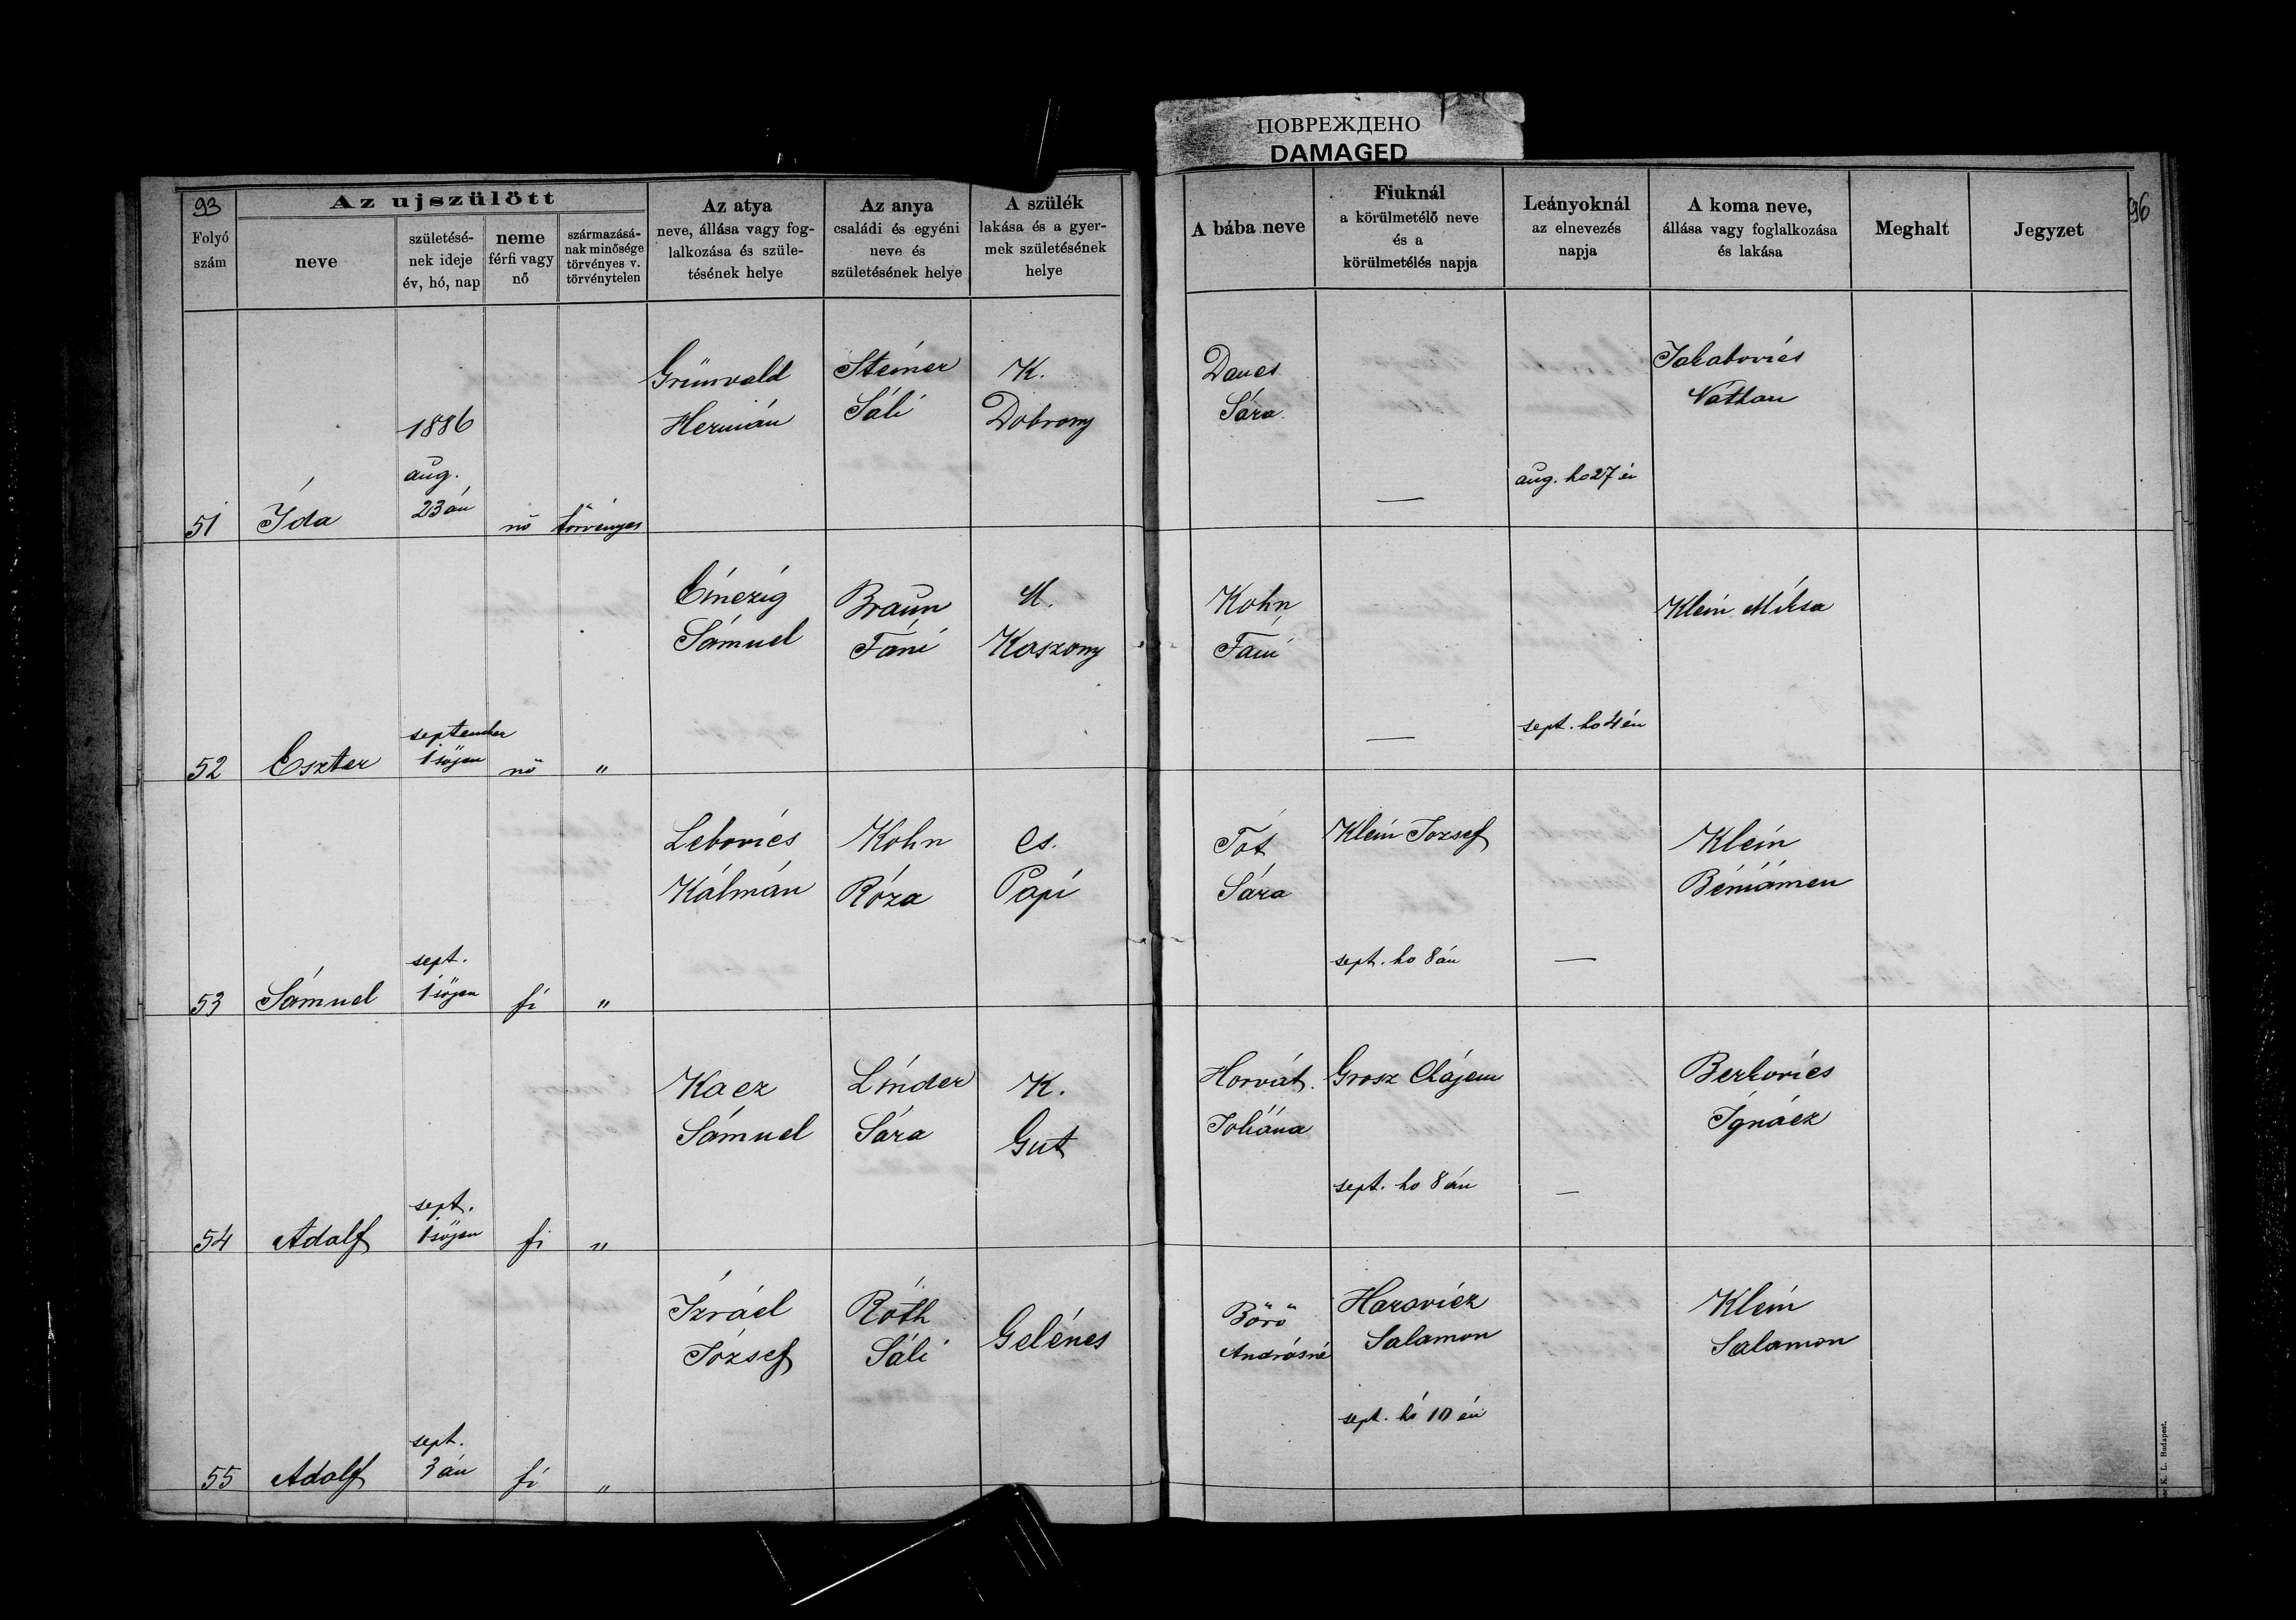 ПОВРЕЖДЕНО
DAMAGED
93
Folyó
szám
Az ujszülött
neve
születésé-
nek ideje
év, hó, nap
neme
férfi vagy
nő
származásá-
nak minősége
törvényes v.
törvénytelen
Az atya
neve, állása vagy fog-
lalkozása és szüle-
tésének helye
Az anya
családi és egyéni
neve és
születésének helye
A szülék
lakása és a gyer-
mek születésének
helye
A bába neve
Fiuknál
a körülmetélő neve
és a
körülmetélés napja
Leányoknál
az elnevezés
napja
A koma neve,
állása vagy foglalkozása
és lakása
Meghalt
Jegyzet
96
51
Ída
1886
aug.
23 án
nő
törvényes
Grünvald
Hermán
Steiner
Sáli
K.
Dobrony
Dancs
Sára
—
aug. ho 27 én
Jakabovics
Náthan
52
Eszter
september
1 söjen
nő
"
Einczig
Sámuel
Braun
Fáni
M.
Kaszony
Kohn
Fáni
—
sept. ho 4 én
Klein Miksa
53
Sámuel
sept.
1 söjen
fi
"
Lebovics
Kálmán
Kohn
Róza
Cs.
Papi
Tót
Sára
Klein Jozsef
sept. ho 8 án
—
Klein
Béniámen
54
Adolf
sept.
1 söjen
fi
"
Kacz
Sámuel
Linder
Sára
K.
Gut
Horvát
Joliána
Grosz Chájem
sept. ho 8 án
—
Berkovics
Ignácz
55
Adolf
sept.
3 án
fi
"
Izráel
József
Róth
Sáli
Gelénes
Börö
Andrásné
Harovicz
Salamon
sept. hó 10 én
Klein
Salamon
K. L. Budapest.